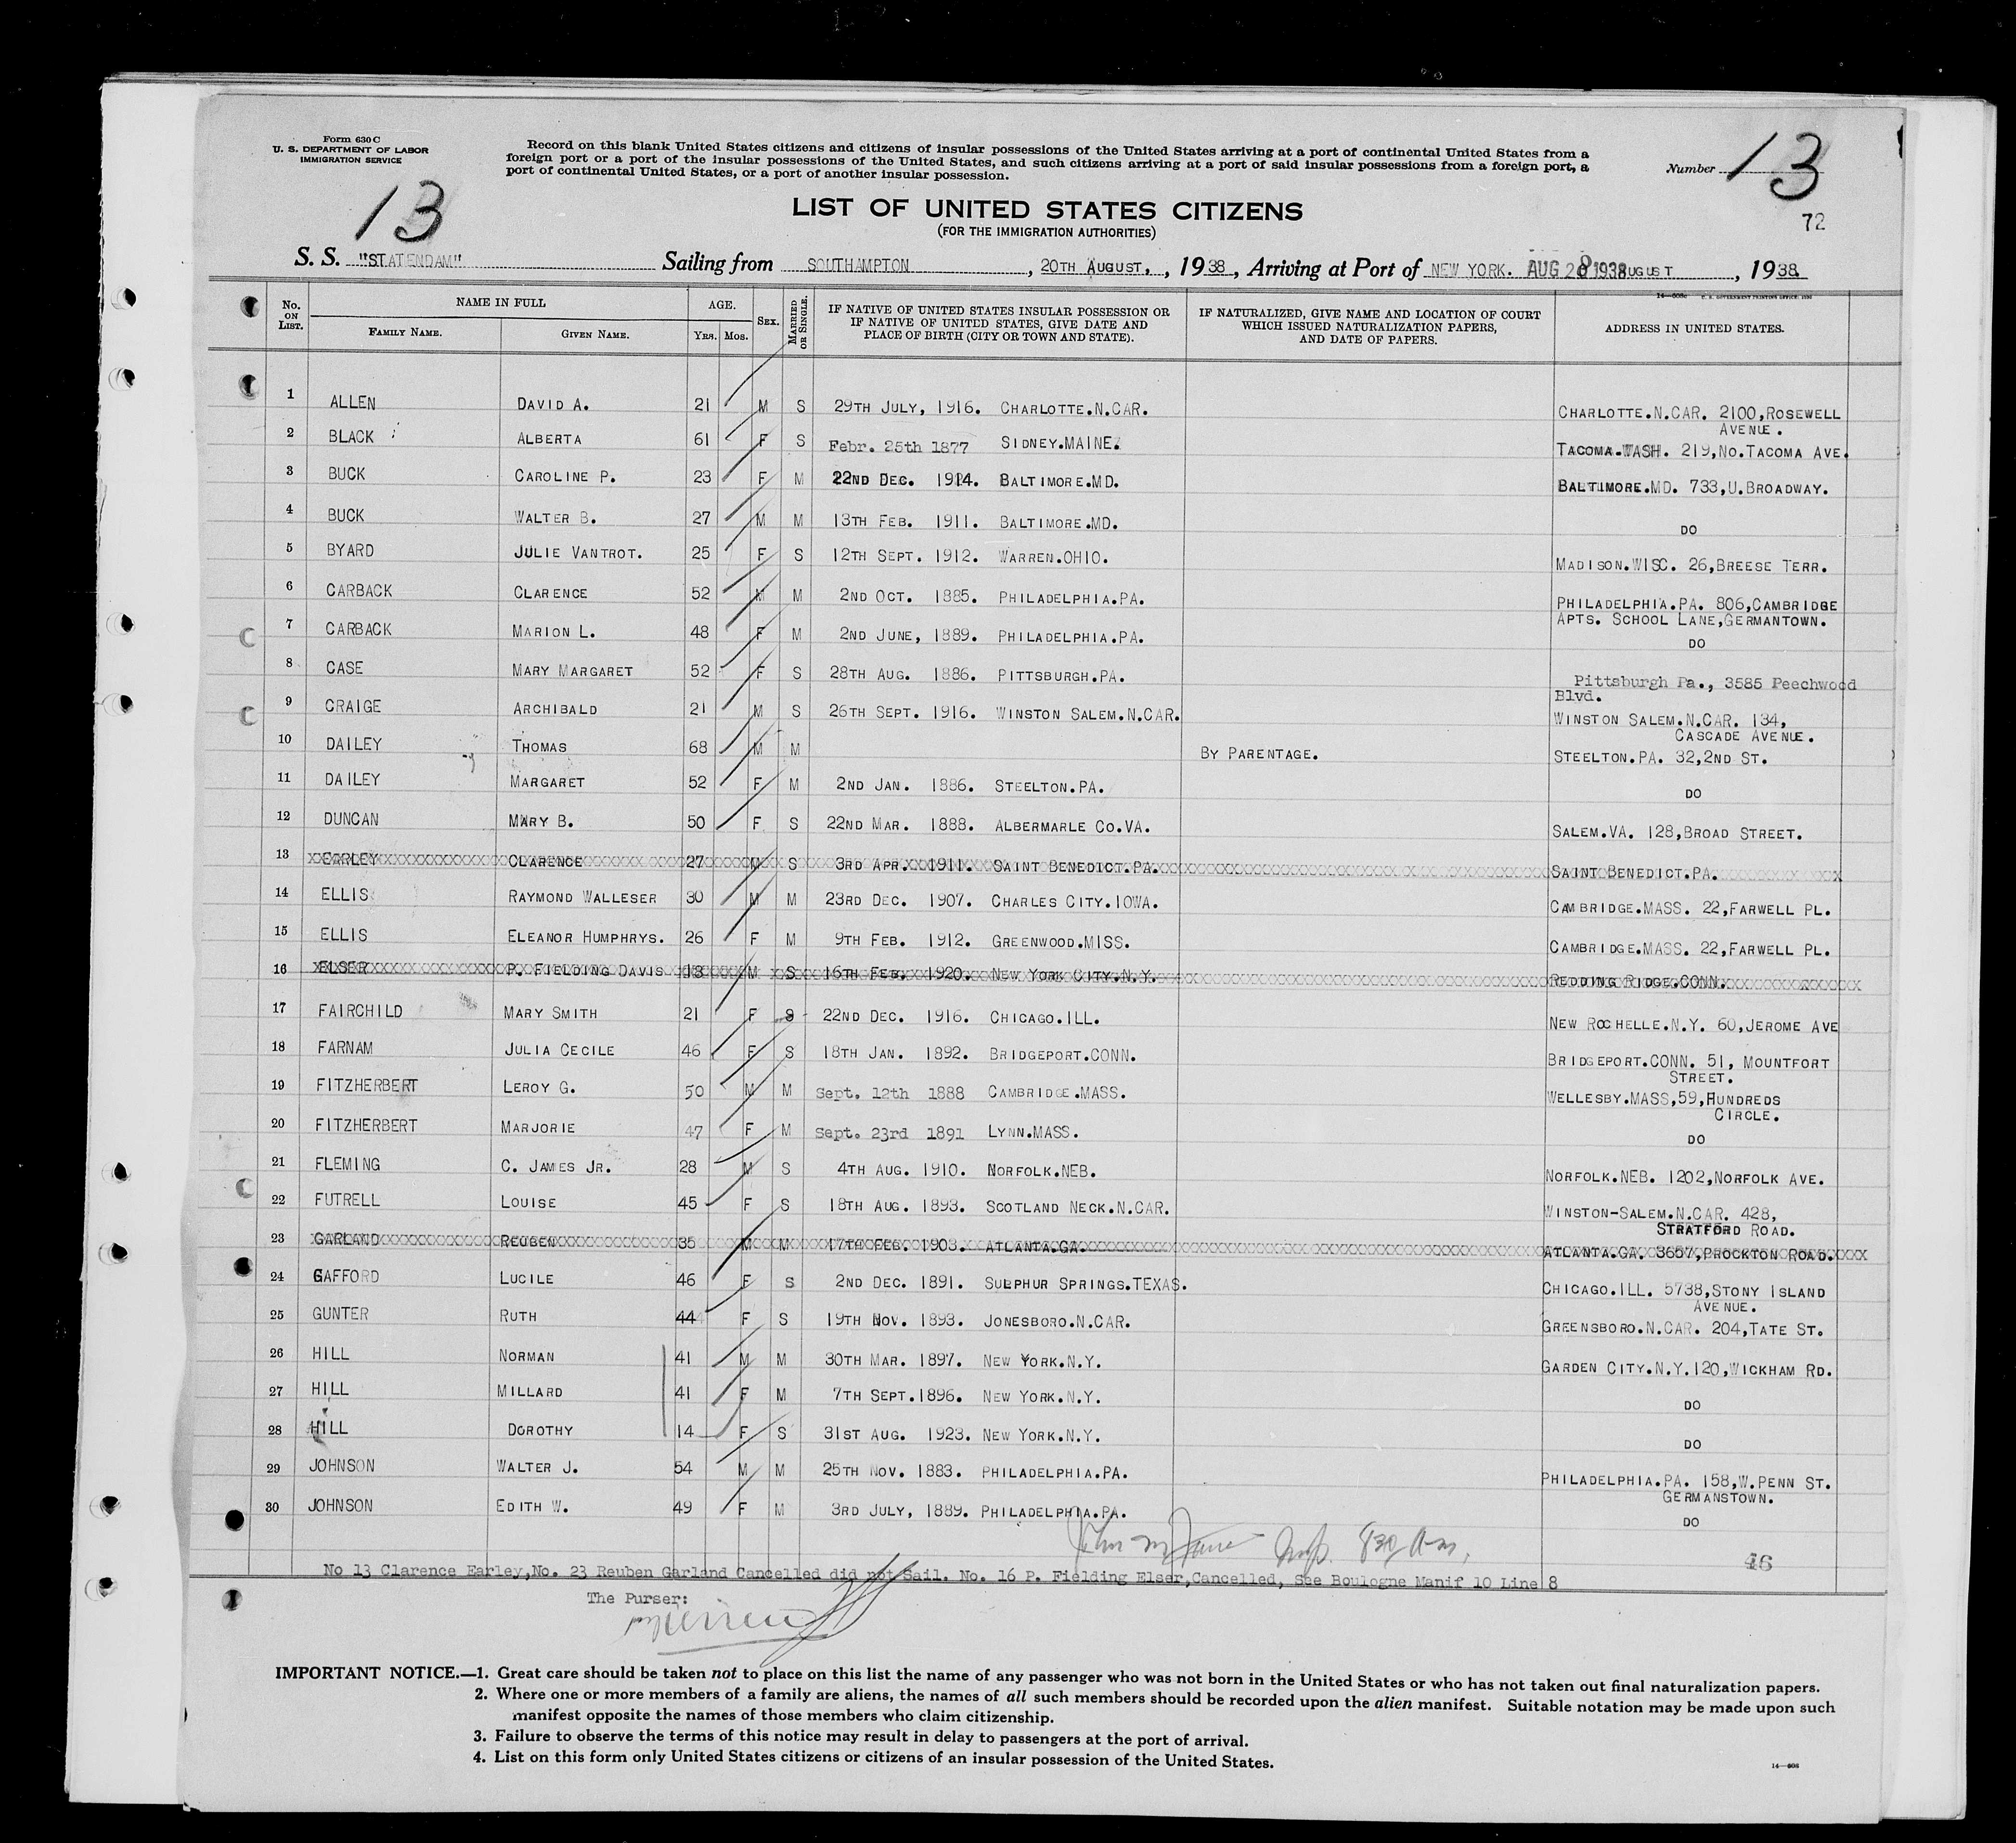 Form 630 C
U. S. DEPARTMENT OF LABOR
IMMIGRATION SERVICE
Record on this blank United States citizens and citizens of insular possessions of the United States arriving at a port of continental United States from a
foreign port or a port of the insular possessions of the United States, and such citizens arriving at a port of said insular possessions from a foreign port, a
port of continental United States, or a port of another insular possession.
Number 13
13
72
LIST OF UNITED STATES CITIZENS
(FOR THE IMMIGRATION AUTHORITIES)
S. S. "STATENDAM" Sailing from SOUTHAMPTON, 20TH AUGUST, , 1938, Arriving at Port of NEW YORK. AUG 28 1938 AUGUST, 1938
No. ON LIST. NAME IN FULL FAMILY NAME. GIVEN NAME. AGE. YRS. MOS. SEX. MARRIED OR SINGLE. IF NATIVE OF UNITED STATES INSULAR POSSESSION OR IF NATIVE OF UNITED STATES, GIVE DATE AND PLACE OF BIRTH (CITY OR TOWN AND STATE). IF NATURALIZED, GIVE NAME AND LOCATION OF COURT WHICH ISSUED NATURALIZATION PAPERS, AND DATE OF PAPERS. ADDRESS IN UNITED STATES.
1 ALLEN DAVID A. 21 M S 29TH JULY, 1916. CHARLOTTE.N.CAR. CHARLOTTE.N.CAR. 2100,ROSEWELL
AVENUE.
2 BLACK ALBERTA 61 F S Febr. 25th 1877 SIDNEY.MAINE. TACOMA.WASH. 219,NO.TACOMA AVE.
3 BUCK CAROLINE P. 23 F M 22ND DEC. 1914. BALTIMORE.MD. BALTIMORE.MD. 733,U.BROADWAY.
4 BUCK WALTER B. 27 M M 13TH FEB. 1911. BALTIMORE.MD. DO
5 BYARD JULIE VANTROT. 25 F S 12TH SEPT. 1912. WARREN.OHIO. MADISON.WISC. 26,BREESE TERR.
6 CARBACK CLARENCE 52 M M 2ND OCT. 1885. PHILADELPHIA.PA. PHILADELPHIA.PA. 806,CAMBRIDGE
APTS. SCHOOL LANE,GERMANTOWN.
7 CARBACK MARION L. 48 F M 2ND JUNE, 1889. PHILADELPHIA.PA. DO
8 CASE MARY MARGARET 52 F S 28TH AUG. 1886. PITTSBURGH.PA. Pittsburgh Pa., 3585 Peechwood
Blvd.
9 CRAIGE ARCHIBALD 21 M S 26TH SEPT. 1916. WINSTON SALEM.N.CAR. WINSTON SALEM.N.CAR. 134,
CASCADE AVENUE.
10 DAILEY THOMAS 68 M M BY PARENTAGE. STEELTON.PA. 32,2ND ST.
11 DAILEY MARGARET 52 F M 2ND JAN. 1886. STEELTON.PA. DO
12 DUNCAN MARY B. 50 F S 22ND MAR. 1888. ALBERMARLE CO.VA. SALEM.VA. 128,BROAD STREET.
13 EARLEY CLARENCE 27 M S 3RD APR. 1911. SAINT BENEDICT.PA. SAINT BENEDICT.PA.
14 ELLIS RAYMOND WALLESER 30 M M 23RD DEC. 1907. CHARLES CITY.IOWA. CAMBRIDGE.MASS. 22,FARWELL PL.
15 ELLIS ELEANOR HUMPHRYS. 26 F M 9TH FEB. 1912. GREENWOOD.MISS. CAMBRIDGE.MASS. 22,FARWELL PL.
16 ELSER P. FIELDING DAVIS 18 M S 16TH FEB. 1920. NEW YORK CITY.N.Y. REDDING RIDGE.CONN.
17 FAIRCHILD MARY SMITH 21 F S 22ND DEC. 1916. CHICAGO.ILL. NEW ROCHELLE.N.Y. 60,JEROME AVE
18 FARNAM JULIA CECILE 46 F S 18TH JAN. 1892. BRIDGEPORT.CONN. BRIDGEPORT.CONN. 51, MOUNTFORT
STREET.
19 FITZHERBERT LEROY G. 50 M M Sept. 12th 1888 CAMBRIDGE.MASS. WELLESBY.MASS,59,HUNDREDS
CIRCLE.
20 FITZHERBERT MARJORIE 47 F M Sept. 23rd 1891 LYNN.MASS. DO
21 FLEMING C. JAMES JR. 28 M S 4TH AUG. 1910. NORFOLK.NEB. NORFOLK.NEB. 1202,NORFOLK AVE.
22 FUTRELL LOUISE 45 F S 18TH AUG. 1893. SCOTLAND NECK.N.CAR. WINSTON-SALEM.N.CAR. 428,
STRATFORD ROAD.
23 GARLAND REUBEN 35 M M 17TH FEB. 1903. ATLANTA.GA. ATLANTA.GA. 3657,PROCKTON ROAD.
24 GAFFORD LUCILE 46 F S 2ND DEC. 1891. SULPHUR SPRINGS.TEXAS. CHICAGO.ILL. 5738,STONY ISLAND
AVENUE.
25 GUNTER RUTH 44 F S 19TH NOV. 1893. JONESBORO.N.CAR. GREENSBORO.N.CAR. 204,TATE ST.
26 HILL NORMAN 41 M M 30TH MAR. 1897. NEW YORK.N.Y. GARDEN CITY.N.Y.120,WICKHAM RD.
27 HILL MILLARD 41 F M 7TH SEPT.1896. NEW YORK.N.Y. DO
28 HILL DOROTHY 14 F S 31ST AUG. 1923. NEW YORK.N.Y. DO
29 JOHNSON WALTER J. 54 M M 25TH NOV. 1883. PHILADELPHIA.PA. PHILADELPHIA.PA. 158,W.PENN ST.
GERMANSTOWN.
30 JOHNSON EDITH W. 49 F M 3RD JULY, 1889. PHILADELPHIA.PA. DO
John M 830 Am.
46
No 13 Clarence Earley,No. 23 Reuben Garland Cancelled did not Sail. No. 16 P. Fielding Elser,Cancelled, See Boulogne Manif 10 Line 8
The Purser:
IMPORTANT NOTICE.—1. Great care should be taken not to place on this list the name of any passenger who was not born in the United States or who has not taken out final naturalization papers.
2. Where one or more members of a family are aliens, the names of all such members should be recorded upon the alien manifest. Suitable notation may be made upon such
manifest opposite the names of those members who claim citizenship.
3. Failure to observe the terms of this notice may result in delay to passengers at the port of arrival.
4. List on this form only United States citizens or citizens of an insular possession of the United States.